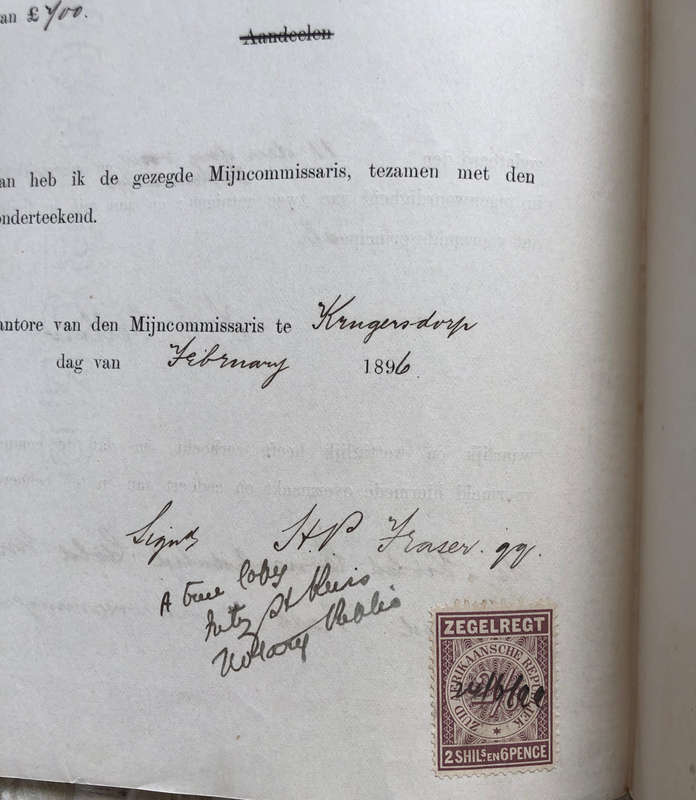 an £700.
Aandeelen
an heb ik de gezegde Mijncommissaris, tezamen met den
onderteekend.
antore van den Mijncommissaris te Krugersdorp
dag van February 1896
Signd H.P. Fraser. qq.
A true Copy
Notary Public
ZEGELREGT
ZUID AFRIKAANSCHE REPUBLIEK
2 SHILS. EN 6 PENCE